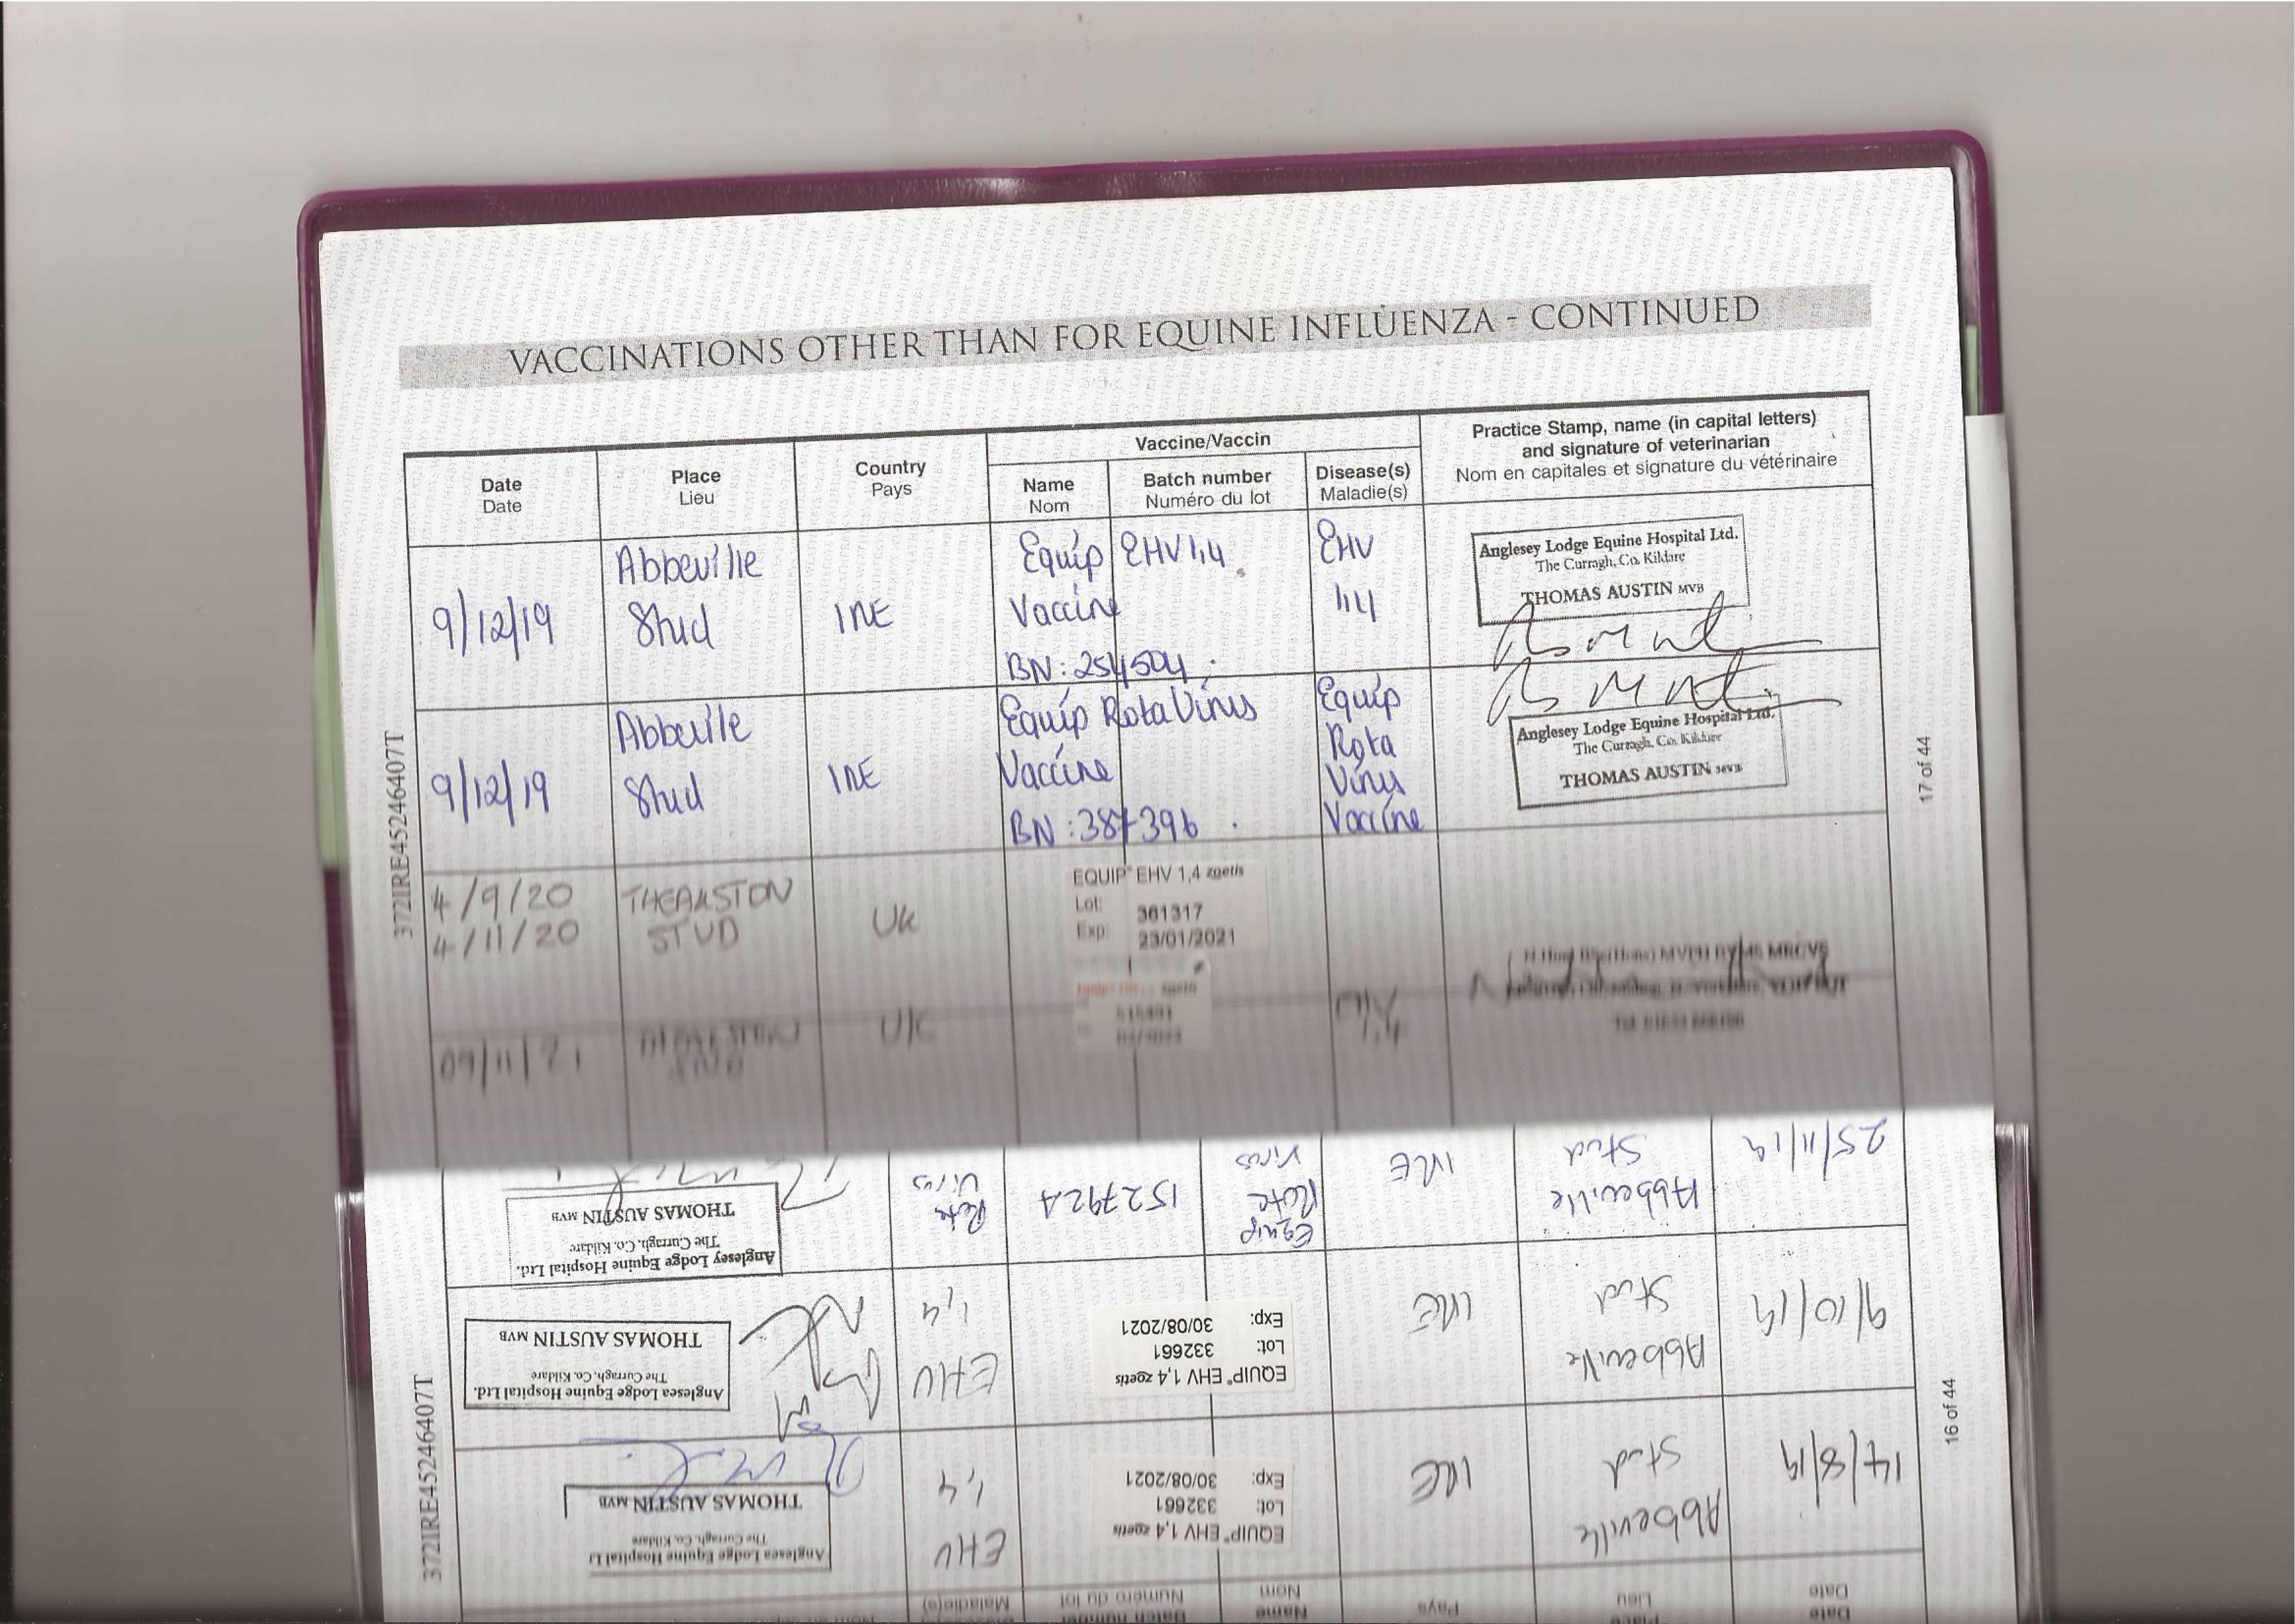 VACCINATIONS OTHER THAN FOR EQUINE INFLUENZA - CONTINUED
Date
Date
Place
Lieu
Country
Pays
Vaccine/Vaccin
Name
Nom
Batch number
Numéro du lot
Disease(s)
Maladie(s)
Practice Stamp, name (in capital letters)
and signature of veterinarian
Nom en capitales et signature du vétérinaire
9/12/19
Abbeville
Stud
IRE
Equip EHV 1,4
Vaccine
BN: 254504
EHV
1,4
Anglesey Lodge Equine Hospital Ltd.
The Curragh, Co. Kildare
THOMAS AUSTIN MVB
9/12/19
Abbeville
Stud
IRE
Equip Rota Virus
Vaccine
BN: 387396
Equip
Rota
Virus
Vaccine
Anglesey Lodge Equine Hospital Ltd.
The Curragh, Co. Kildare
THOMAS AUSTIN MVB
4/9/20
4/11/20
THEAKSTON
STUD
UK
EQUIP® EHV 1,4 zoetis
Lot: 361317
Exp: 23/01/2021
09/11/21
THEAKSTON
STUD
UK
1,4
372IRE45246407T
17 of 44
Date
Date
Place
Lieu
Pays
Name
Nom
Batch number
Numéro du lot
Maladie(s)
14/8/19
Abbeville
Stud
IRE
EQUIP® EHV 1,4 zoetis
Lot: 332661
Exp: 30/08/2021
EHV
1,4
Anglesea Lodge Equine Hospital Lt
The Curragh, Co. Kildare
THOMAS AUSTIN MVB
9/10/19
Abbeville
Stud
IRE
EQUIP® EHV 1,4 zoetis
Lot: 332661
Exp: 30/08/2021
EHV
1,4
Anglesea Lodge Equine Hospital Ltd.
The Curragh, Co. Kildare
THOMAS AUSTIN MVB
25/11/19
Abbeville
Stud
IRE
Equip
Rota
Virus
152792A
Rota
Virus
Anglesey Lodge Equine Hospital Ltd.
The Curragh, Co. Kildare
THOMAS AUSTIN MVB
372IRE45246407T
16 of 44